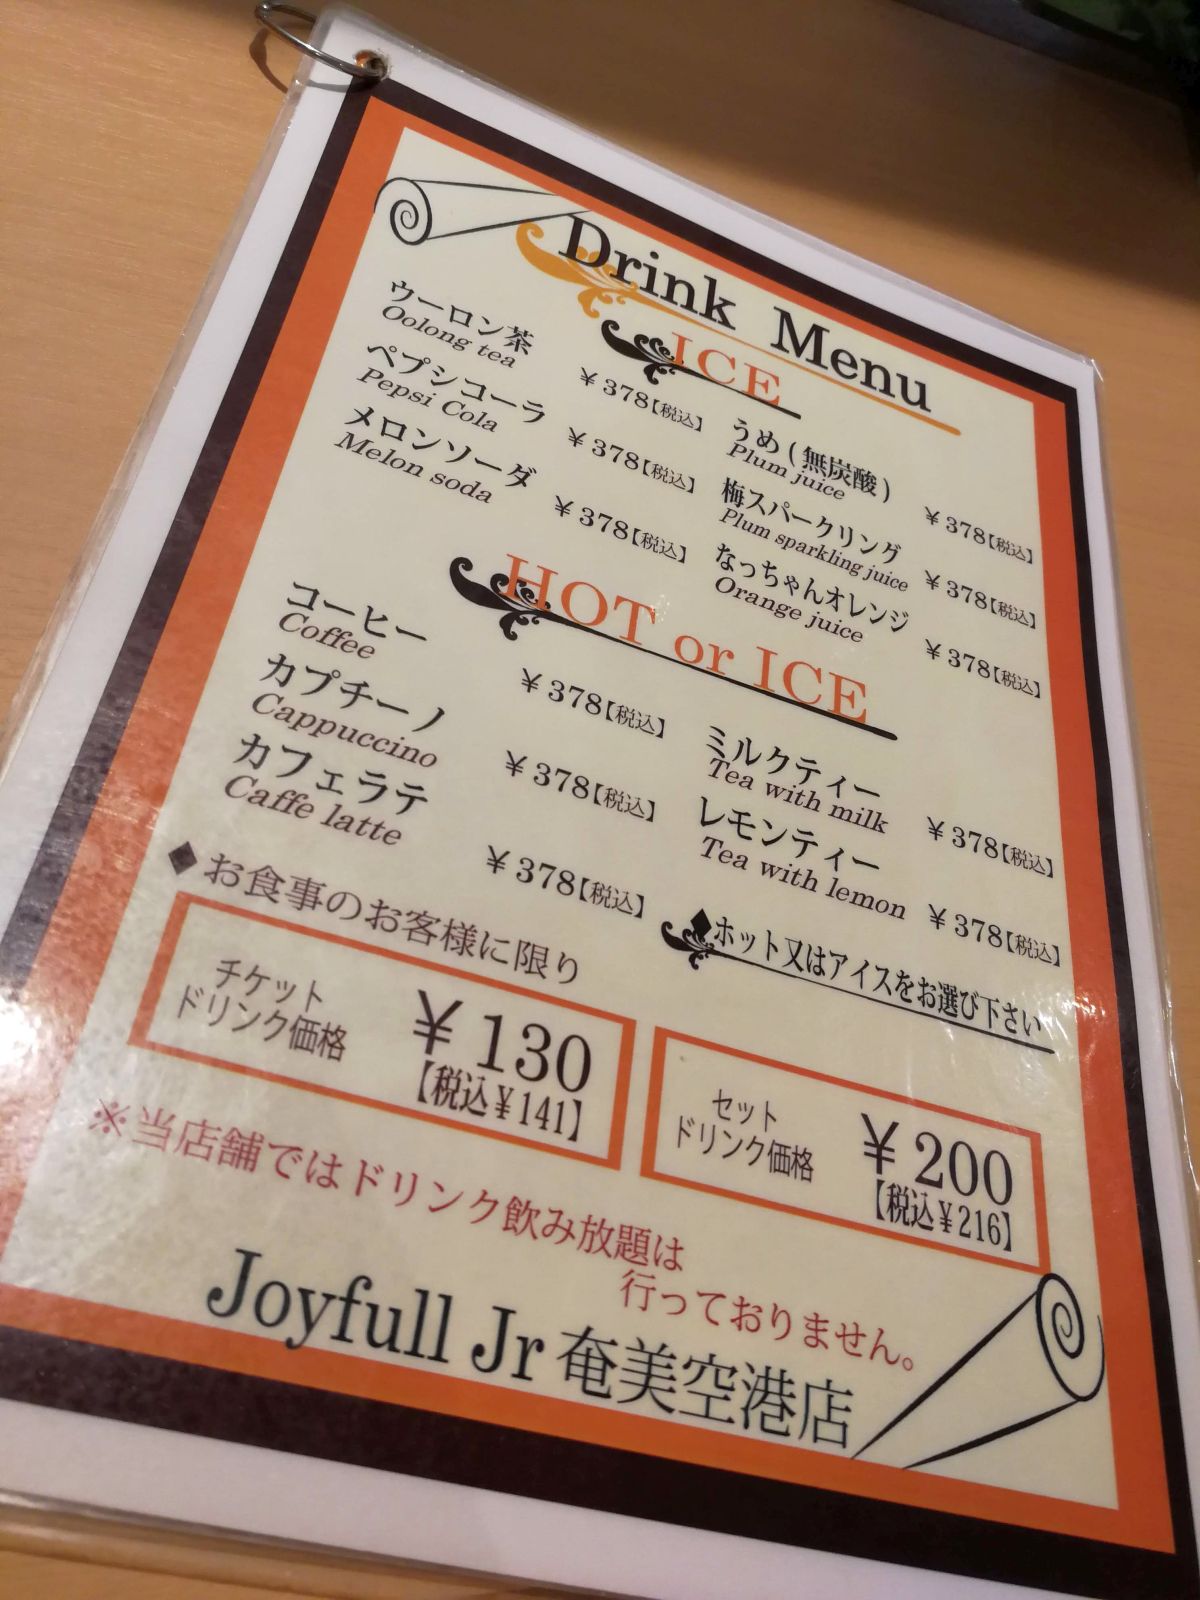 Drink Menu
ICE
ウーロン茶
Oolong tea
¥378【税込】
ペプシコーラ
Pepsi Cola
¥378【税込】
メロンソーダ
Melon soda
¥378【税込】
うめ(無炭酸)
Plum juice
¥378【税込】
梅スパークリング
Plum sparkling juice
¥378【税込】
なっちゃんオレンジ
Orange juice
¥378【税込】
HOT or ICE
コーヒー
Coffee
¥378【税込】
カプチーノ
Cappuccino
¥378【税込】
カフェラテ
Caffe latte
¥378【税込】
ミルクティー
Tea with milk
¥378【税込】
レモンティー
Tea with lemon
¥378【税込】
◆ホット又はアイスをお選び下さい
◆お食事のお客様に限り
チケット
ドリンク価格
¥130
【税込¥141】
セット
ドリンク価格
¥200
【税込¥216】
※当店舗ではドリンク飲み放題は
行っておりません。
Joyfull Jr 奄美空港店